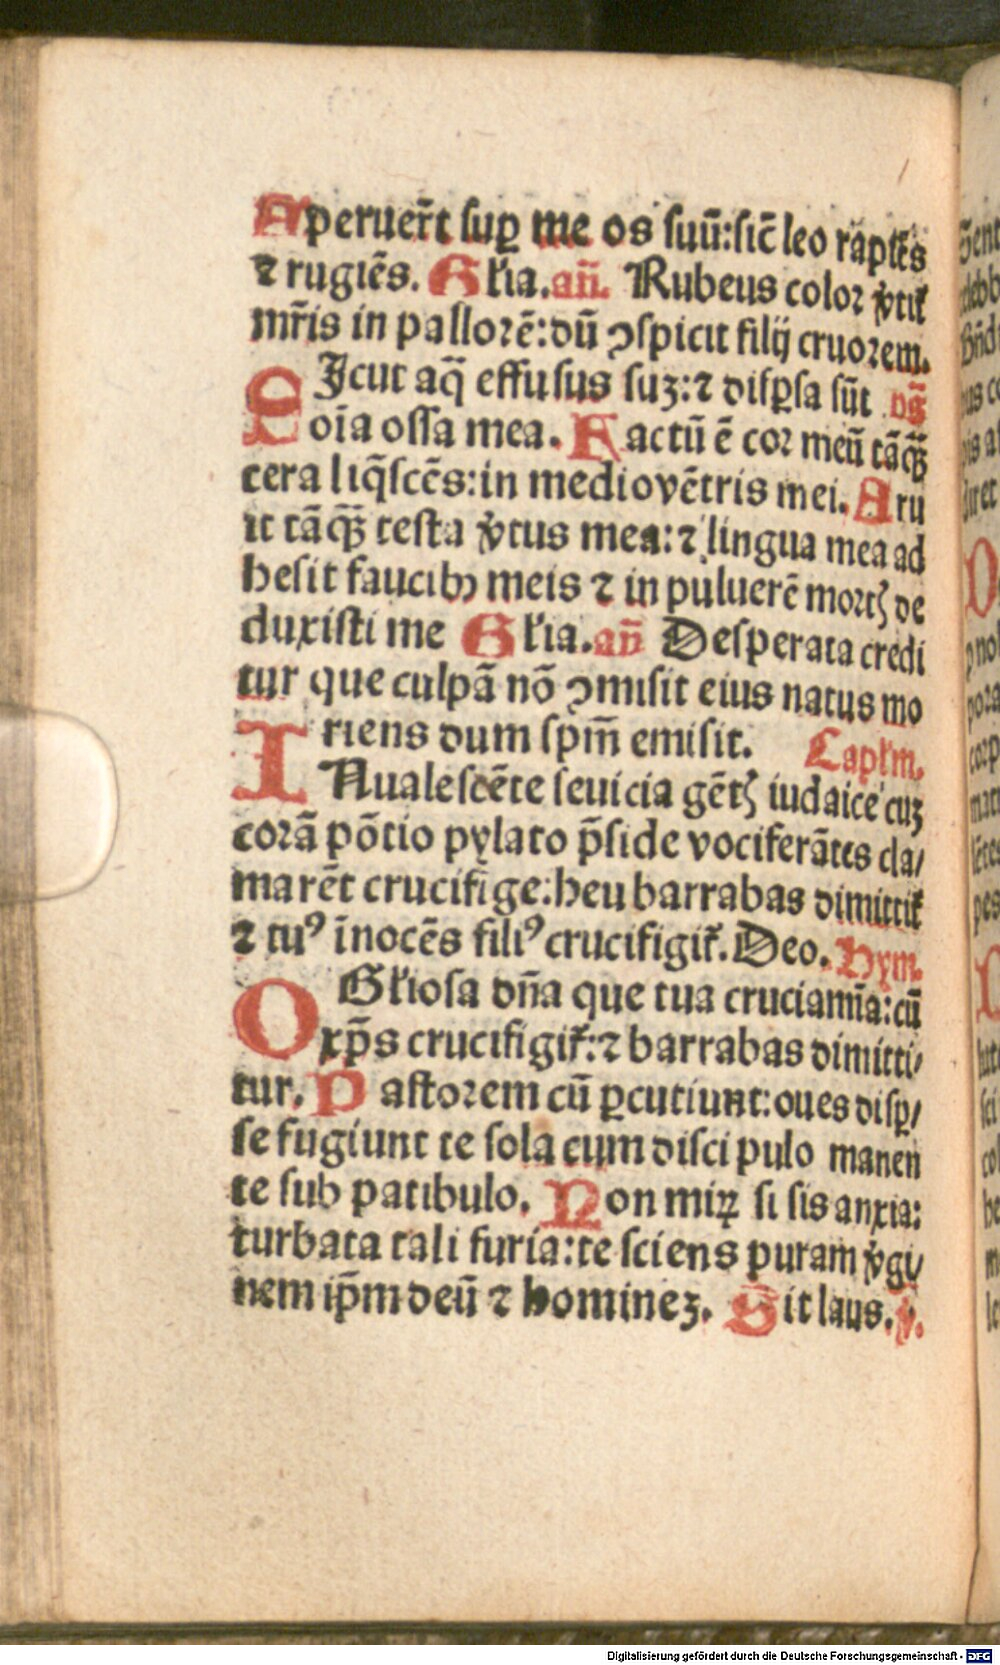 Aperuer̄t suꝑ me os suū:sic̄ leo rapiēs
⁊ rugiēs. Gl̄ia.an̄. Rubeus color v̄tit᷑
mr̄is in pallorē:dū ↄspicit filij cruorem.
SIcut aq̄ effusus suꝫ:⁊ disꝑsa sūt ps̄
oīa ossa mea. Factū ē cor meū tāq̄ꝫ
cera liq̄scēs:in medio vētris mei. Aru
it tāq̄ꝫ testa v̄tus mea:⁊ lingua mea ad
hesit faucibꝫ meis ⁊ in puluerē mortꝭ de
duxisti me Gl̄ia.an̄ Desperata credi
tur que culpā nō ↄmisit eius natus mo
riens dum spm̄ emisit. Capl̄m.
INualescēte seuicia gētꝭ iudaice cuꝫ
corā pōtio pylato p̄side vociferātes cla/
marēt crucifige:heu barrabas dimittit᷑
⁊ tuꝰ īnocēs filiꝰ crucifigit᷑. Deo. Hym.
O Gl̄iosa dn̄a que tua cruciamīa:cū
xp̄s crucifigit᷑:⁊ barrabas dimitti/
tur. Pastorem cū ꝑcutiunt:oues disꝑ/
se fugiunt te sola cum discipulo manen
te sub patibulo. Non miꝝ si sis anxia:
turbata tali furia:te sciens puram v̄gi/
nem ip̄m deū ⁊ homineꝫ. Sit laus. ℣.
Digitalisierung gefördert durch die Deutsche Forschungsgemeinschaft - DFG